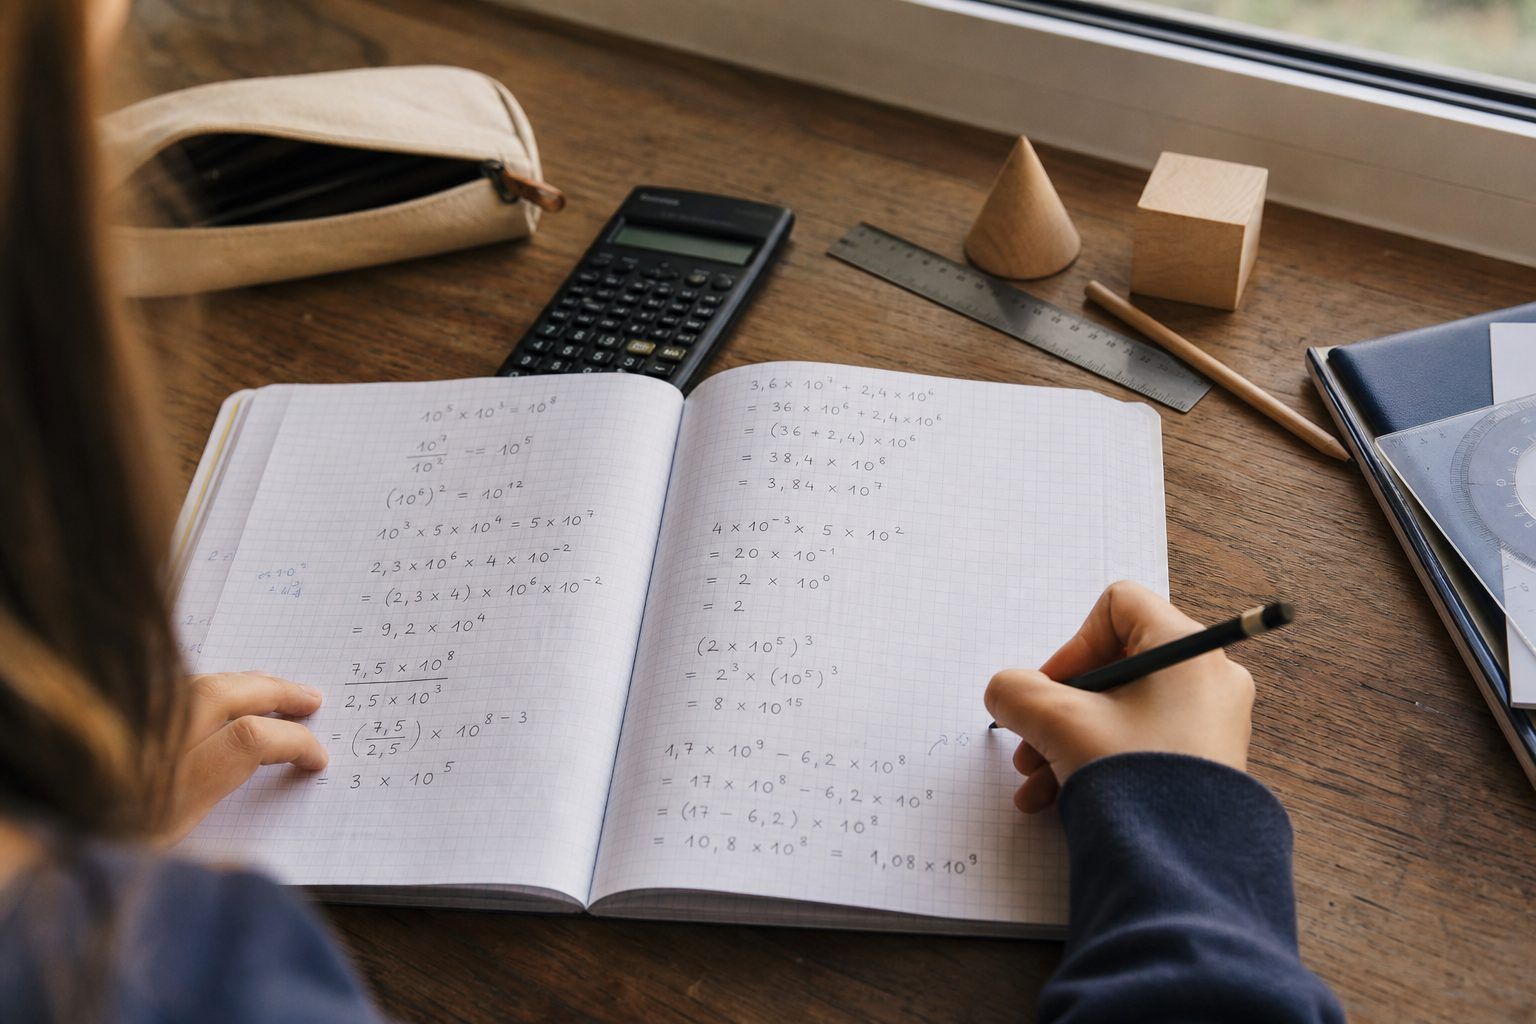 10⁵ × 10³ = 10⁸
10⁷
10² = 10⁵
(10⁶)² = 10¹²
10³ × 5 × 10⁴ = 5 × 10⁷
2,3 × 10⁶ × 4 × 10⁻²
= (2,3 × 4) × 10⁶ × 10⁻²
= 9,2 × 10⁴
7,5 × 10⁸
2,5 × 10³
= (7,5/2,5) × 10⁸⁻³
= 3 × 10⁵
3,6 × 10⁷ + 2,4 × 10⁶
= 36 × 10⁶ + 2,4 × 10⁶
= (36 + 2,4) × 10⁶
= 38,4 × 10⁶
= 3,84 × 10⁷
4 × 10⁻³ × 5 × 10²
= 20 × 10⁻¹
= 2 × 10⁰
= 2
(2 × 10⁵)³
= 2³ × (10⁵)³
= 8 × 10¹⁵
1,7 × 10⁹ − 6,2 × 10⁸
= 17 × 10⁸ − 6,2 × 10⁸
= (17 − 6,2) × 10⁸
= 10,8 × 10⁸ = 1,08 × 10⁹